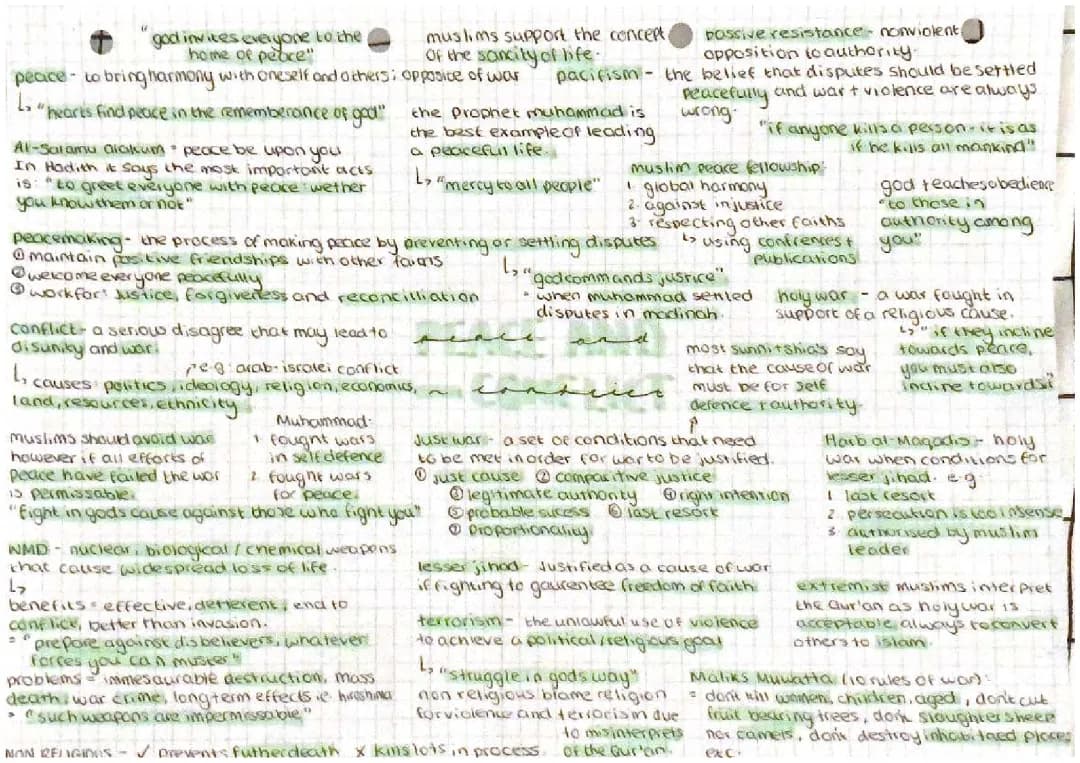 "god invites everyone to the
home of peace"
muslims support the concept
of the sancity of life.
passive resistance - nonviolent
opposition to authority.
peace - to bring harmony with oneself and others; opposite of war
pacifism - the belief that disputes should be settled
peacefully and war + violence are always
wrong.
↳ "hearts find peace in the rememberance of god"
the prophet muhammad is
the best example of leading
a peaceful life.
↳ "mercy to all people"
"if anyone kills a person - it is as
if he kills all mankind"
Al-Salamu alaikum = peace be upon you
In Hadith it says the most important acts
is: "to greet everyone with peace: wether
you know them or not"
muslim peace fellowship:
1 global harmony
2. against injustice
3. respecting other faiths
↳ using confrences +
publications
god teaches obedience
"to those in
authority among
you"
peacemaking - the process of making peace by preventing or settling disputes
① maintain positive friendships with other faiths
② welcome everyone peacefully
③ work for: justice, forgiveness and reconcilliation
↳ "god commands justice"
- when muhammad settled
disputes in madinah.
holy war - a war fought in
support of a religious cause.
↳ "if they incline
towards peace,
you must also
incline towards it"
conflict - a serious disagree that may lead to
disunity and war.
e.g: arab-israeli conflict
↳ causes: politics, ideology, religion, economics,
land, resources, ethnicity
PEACE AND
peace and
CONFLICT
conflict
most sunni + shia's say
that the cause of war
must be for self
defence + authority.
muslims should avoid war
however if all efforts of
peace have failed the war
is permissable.
"fight in gods cause against those who fight you"
Muhammad-
1 fought wars
in self defence
2. fought wars
for peace.
Just war - a set of conditions that need
to be met in order for war to be justified.
① just cause ② comparitive justice
③ legitimate authority ④ right intention
⑤ probable sucess ⑥ last resort
⑦ proportionality
Harb al-Maqadis - holy
war when conditions for
lesser jihad. e.g
1 last resort
2. persecution is too intense
3. authorised by muslim
leader
WMD - nuclear, biological / chemical weapons
that cause widespread loss of life.
↳
benefits = effective, deterrent, end to
conflict, better than invasion.
= "prepare against disbelievers, whatever
forces you can muster"
problems = immesaurable destruction, mass
death, war crime, long term effects i.e. hiroshima
= "such weapons are impermissable"
NON RELIGIOUS - ✓ prevents futher death x kills lots in process.
lesser jihad - justified as a cause of war
if fighting to gaurentee freedom of faith
terrorism - the unlawful use of violence
to achieve a political/religious goal
↳ "struggle in gods way"
non religious blame religion
for violence and terrorism due
to misinterprets
of the Qur'an.
extremist muslims interpret
the Qur'an as holy war is
acceptable always to convert
others to islam.
Maliks Muwatta (10 rules of war):
= dont kill women, children, aged, dont cut
fruit bearing trees, dont slaughter sheep
nor camels, dont destroy inhabited places
exc.